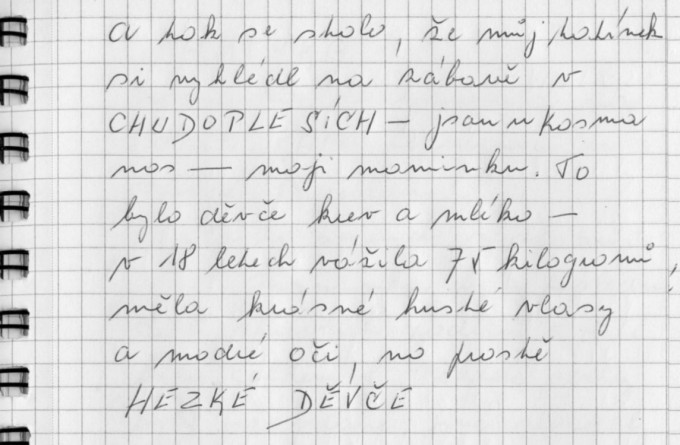 a tak se stalo, že můj tatínek
si vyhlédl na zábavě v
CHUDOPLESÍCH – jsou u Kosmo
nos — moji maminku. To
bylo děvče krev a mlíko –
v 18 letech vážila 75 kilogramů,
měla krásné husté vlasy
a modré oči, no prostě
HEZKÉ DĚVČE